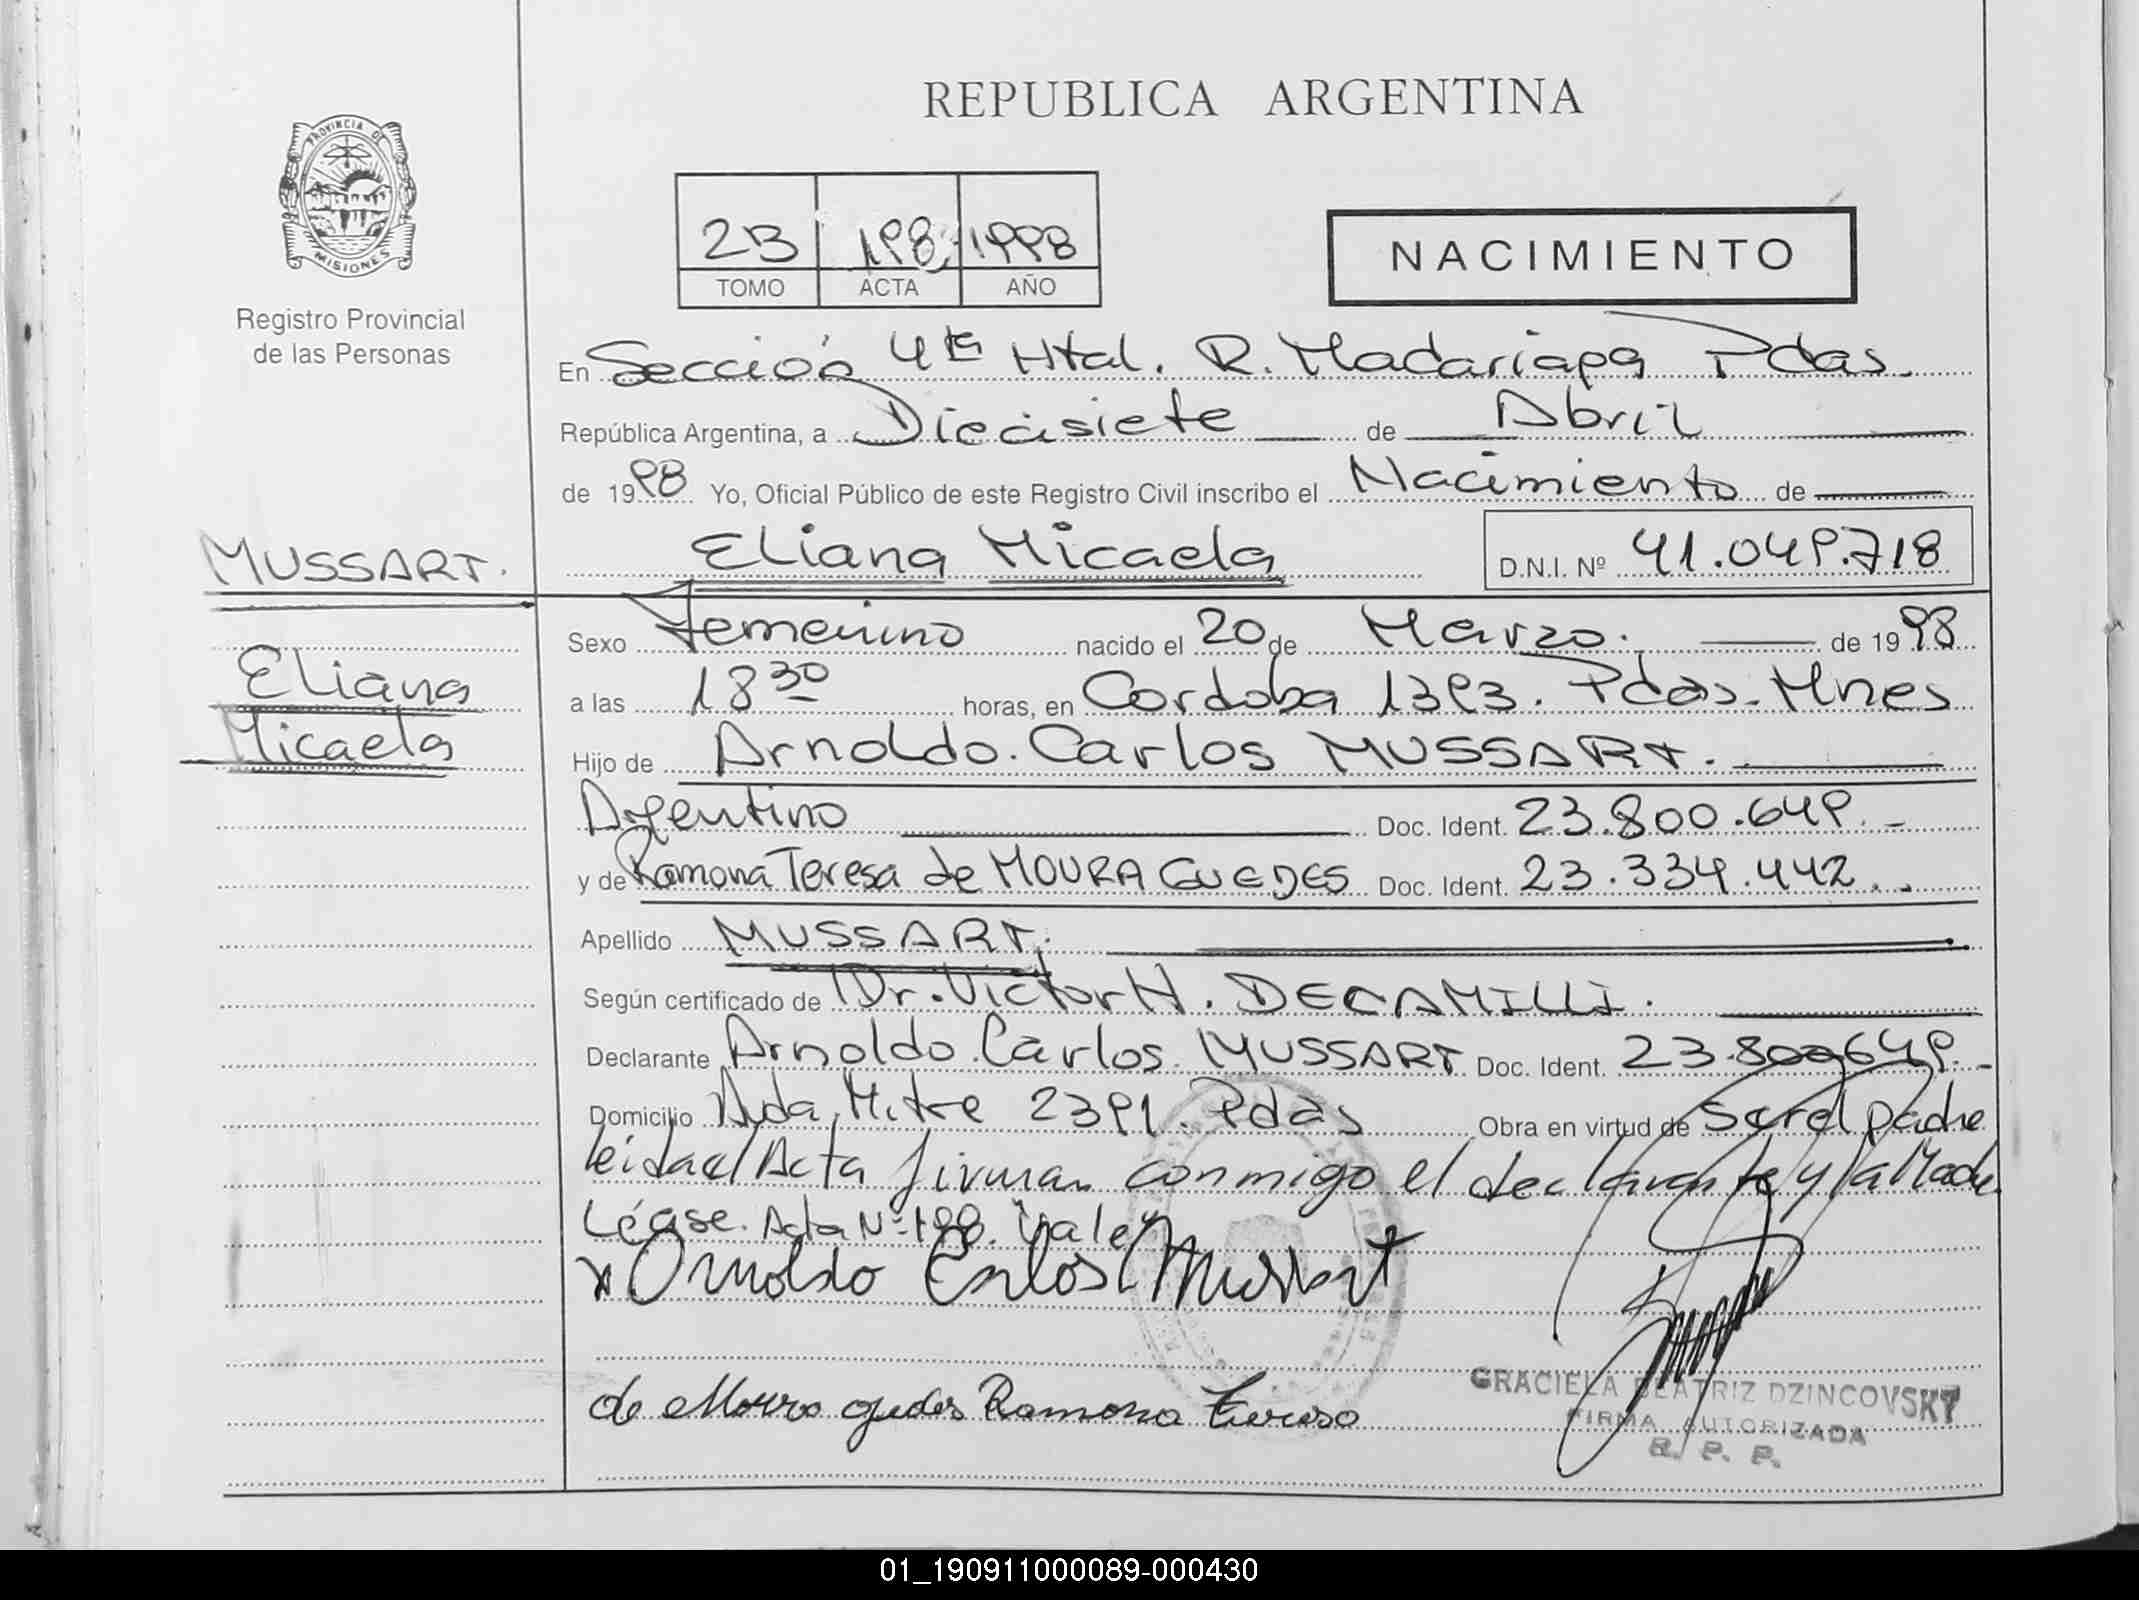 REPUBLICA ARGENTINA
PROVINCIA DE
MISIONES
Registro Provincial
de las Personas
2B 198 1998
TOMO ACTA AÑO
NACIMIENTO
En Sección 4ta Htal. R. Madariaga Pdas.
República Argentina, a Diecisiete de Abril
de 1998 Yo, Oficial Público de este Registro Civil inscribo el Nacimiento de
Eliana Micaela D.N.I. Nº 41.049.718
MUSSART.
Eliana
Micaela
Sexo Femenino nacido el 20 de Marzo. de 1998
a las 18 30 horas, en Cordoba 1393. Pdas. Mnes
Hijo de Arnoldo. Carlos MUSSART.
Argentino Doc. Ident. 23.800.649.-
y de Ramona Teresa de MOURA GUEDES Doc. Ident. 23.334.442.-
Apellido MUSSART.
Según certificado de Dr. Victor H. DECAMILLI.
Declarante Arnoldo. Carlos. MUSSART Doc. Ident. 23.800649.-
Domicilio Avda. Mitre 2391. Pdas Obra en virtud de Ser el padre
leida el Acta firman conmigo el declarante y la Madre
Léase. Acta Nº 198. Vale
x Arnoldo Carlos Mussart
de Moura guedes Ramona Teresa
GRACIELA BEATRIZ DZINCOVSKY
FIRMA AUTORIZADA
R. P. P.
01_190911000089-000430